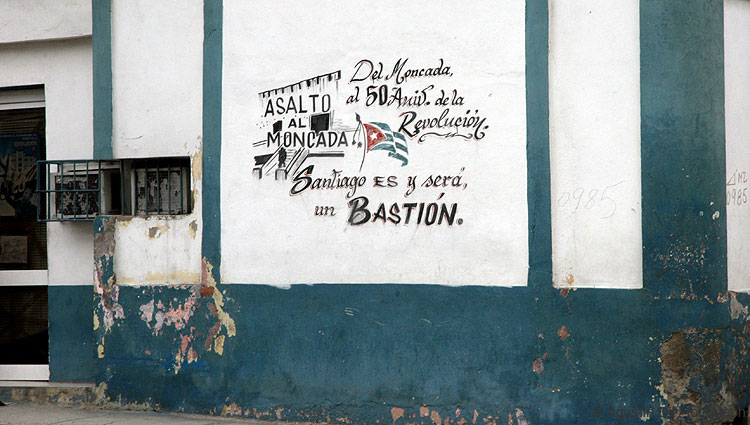 ASALTO
AL
MONCADA
Del Moncada,
al 50 Aniv. de la
Revolución.
Santiago ES y será,
un BASTIÓN.
0985
0985